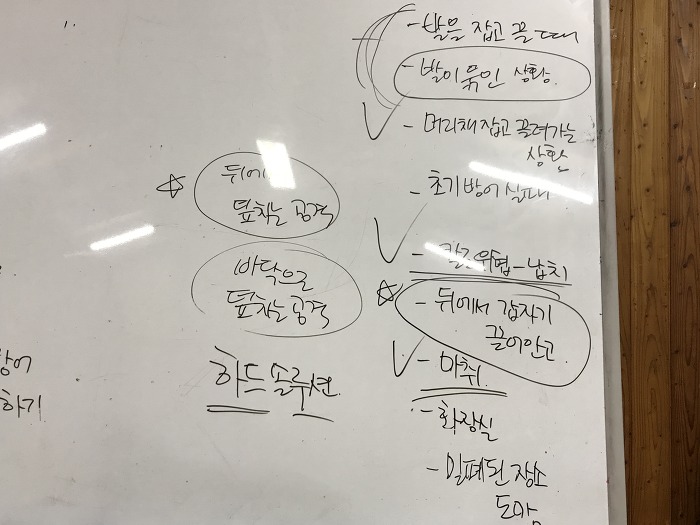 - 발을 잡고 끌 때
- 발이 묶인 상황.
- 머리채 잡고 끌려가는
상황
- 초기 방어 실패
- 칼로 위협 - 납치
- 뒤에서 갑자기
끌어안고
- 마취
- 화장실
- 밀폐된 장소
도망
뒤에
덮치는 공격
바닥으로
덮치는 공격
하드 솔루션.
방어
하기